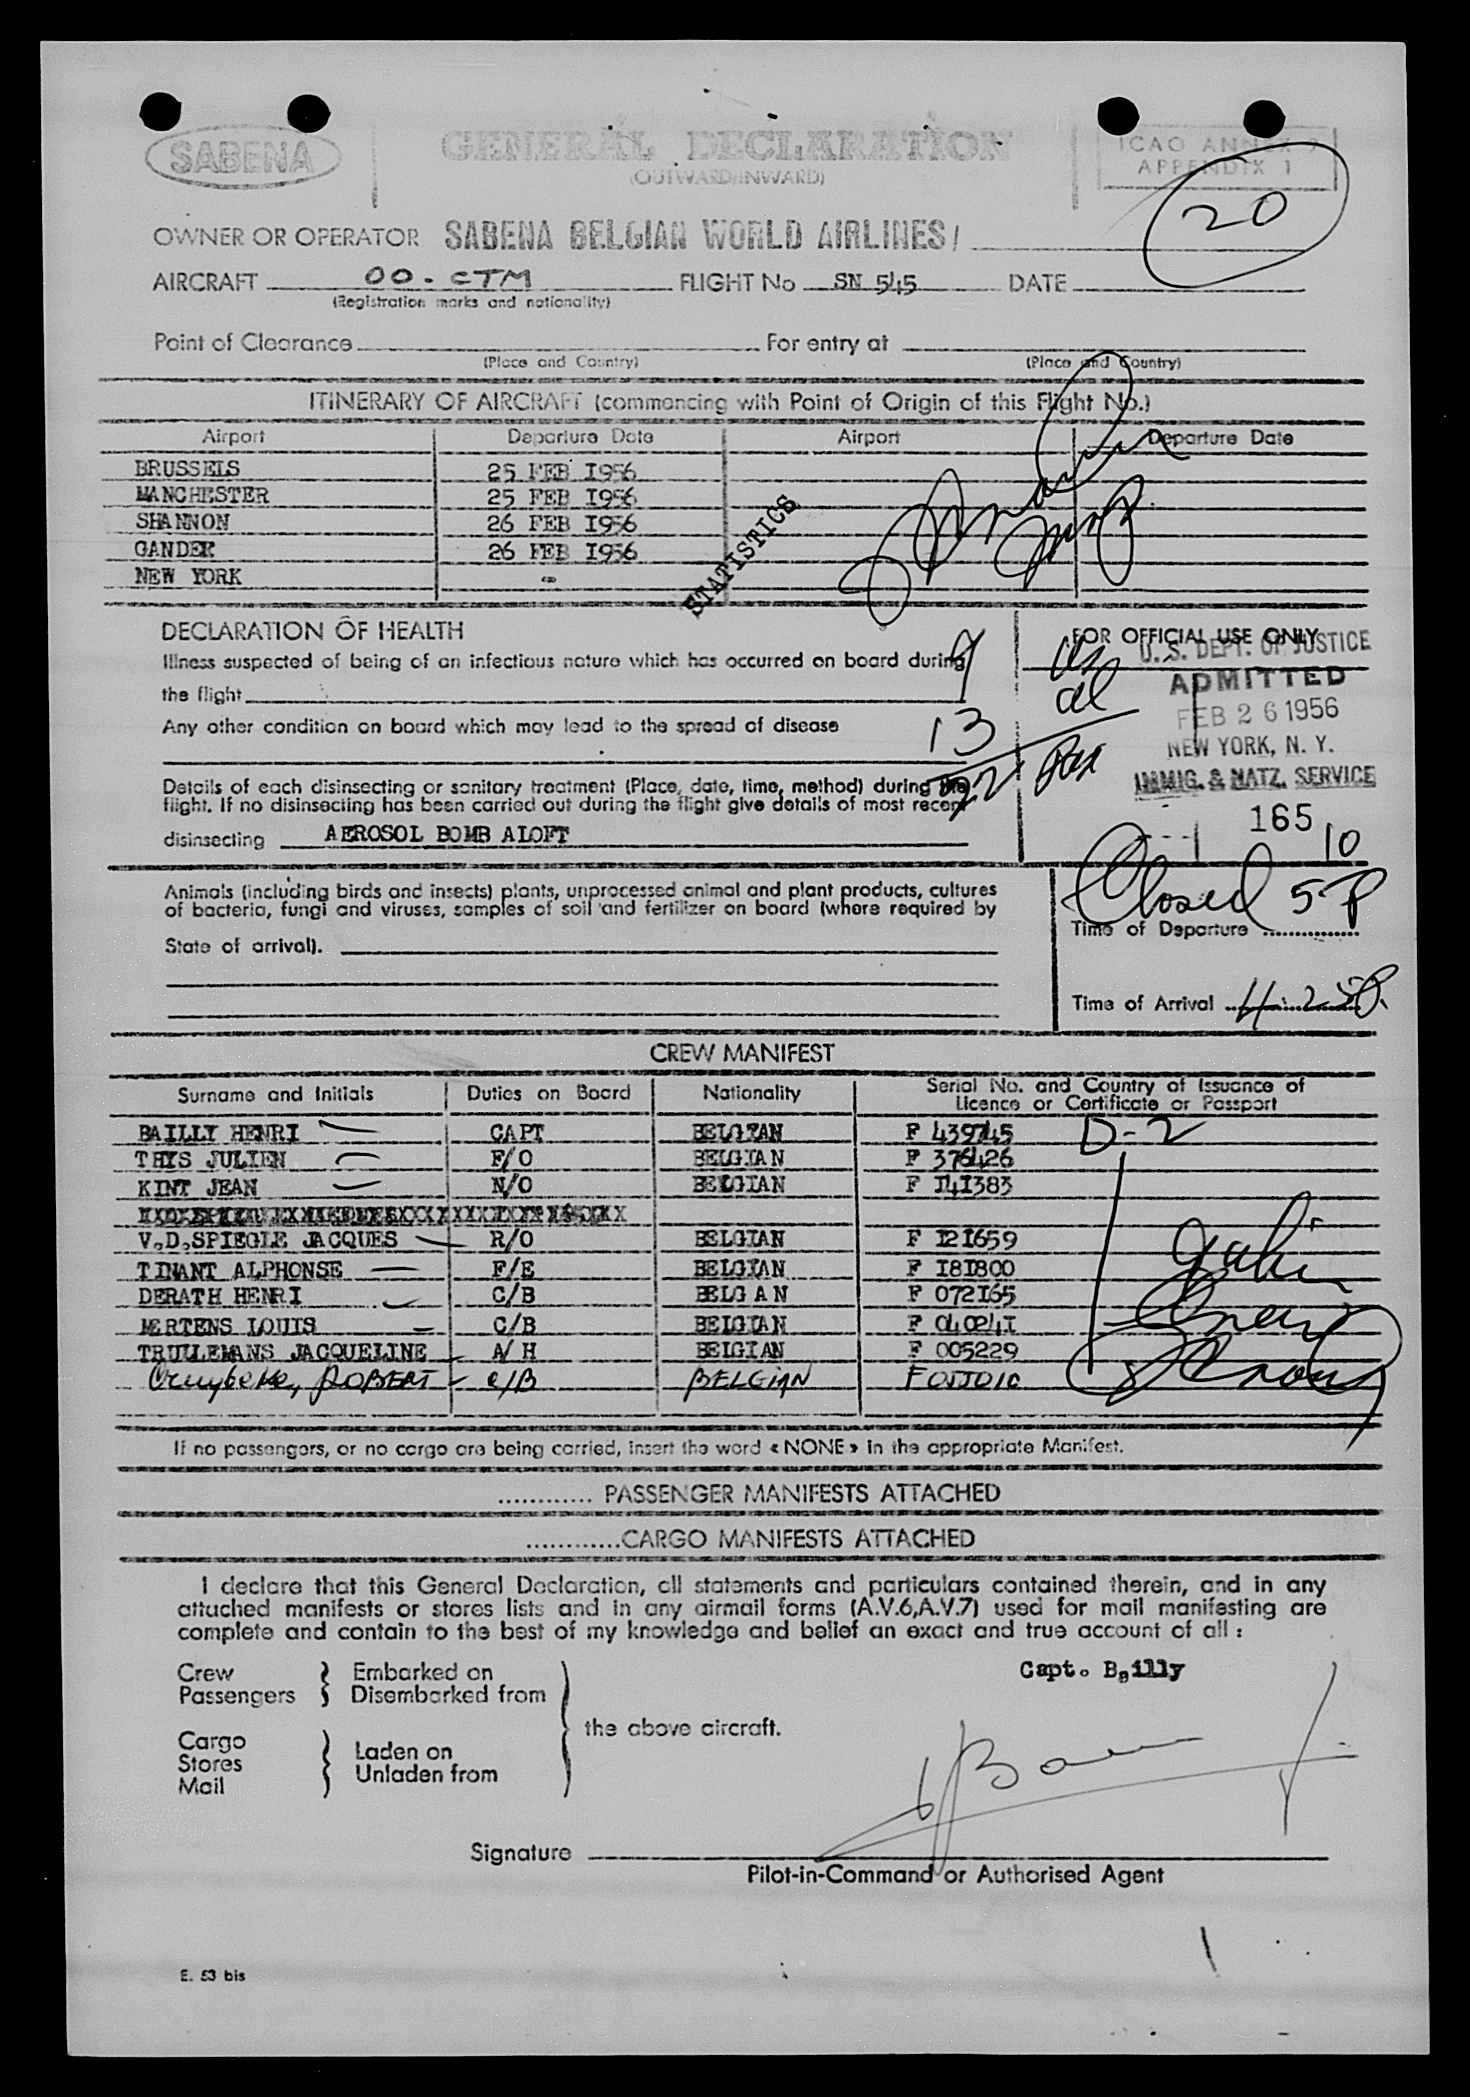 SABENA
GENERAL DECLARATION
(OUTWARD/INWARD)
ICAO ANNEX 9
APPENDIX 1
20
OWNER OR OPERATOR SABENA BELGIAN WORLD AIRLINES/
AIRCRAFT OO-CTM FLIGHT No SN 545 DATE
(Registration marks and nationality)
Point of Clearance For entry at
(Place and Country) (Place and Country)
ITINERARY OF AIRCRAFT (commencing with Point of Origin of this Flight No.)
Airport Departure Date Airport Departure Date
BRUSSELS 25 FEB I956
MANCHESTER 25 FEB I956
SHANNON 26 FEB I956
GANDER 26 FEB I956
NEW YORK -
STATISTICS
DECLARATION OF HEALTH
Illness suspected of being of an infectious nature which has occurred on board during
the flight
Any other condition on board which may lead to the spread of disease
Details of each disinsecting or sanitary treatment (Place, date, time, method) during the
flight. If no disinsecting has been carried out during the flight give details of most recent
disinsecting AEROSOL BOMB ALOFT
9 us
13 al
22 pax
FOR OFFICIAL USE ONLY
U.S. DEPT. OF JUSTICE
ADMITTED
FEB 26 1956
NEW YORK, N. Y.
IMMIG. & NATZ. SERVICE
165
10
Animals (including birds and insects) plants, unprocessed animal and plant products, cultures
of bacteria, fungi and viruses, samples of soil and fertilizer on board (where required by
State of arrival).
Closed 5-P
Time of Departure
Time of Arrival 4:25P.
CREW MANIFEST
Surname and Initials Duties on Board Nationality Serial No. and Country of Issuance of
Licence or Certificate or Passport
BAILLY HENRI CAPT BELGIAN F 439745 D-2
THYS JULIEN F/O BELGIAN F 376426
KINT JEAN N/O BELGIAN F I4I383
V.D.SPIEGLE JACQUES R/O BELGIAN F I2I659
TINANT ALPHONSE F/E BELGIAN F I8I800
DERATH HENRI C/B BELG A N F 072I65
MERTENS LOUIS C/B BELGIAN F 04024I
TRULLEMANS JACQUELINE A/H BELGIAN F 005229
ROBERT C/B BELGIAN
If no passengers, or no cargo are being carried, insert the word « NONE » in the appropriate Manifest.
............ PASSENGER MANIFESTS ATTACHED
............CARGO MANIFESTS ATTACHED
I declare that this General Declaration, all statements and particulars contained therein, and in any
attached manifests or stores lists and in any airmail forms (A.V.6,A.V.7) used for mail manifesting are
complete and contain to the best of my knowledge and belief an exact and true account of all :
Capt. Bailly
Crew Embarked on
Passengers Disembarked from
the above aircraft.
Cargo
Stores Laden on
Mail Unladen from
Signature
Pilot-in-Command or Authorised Agent
E. 53 bis